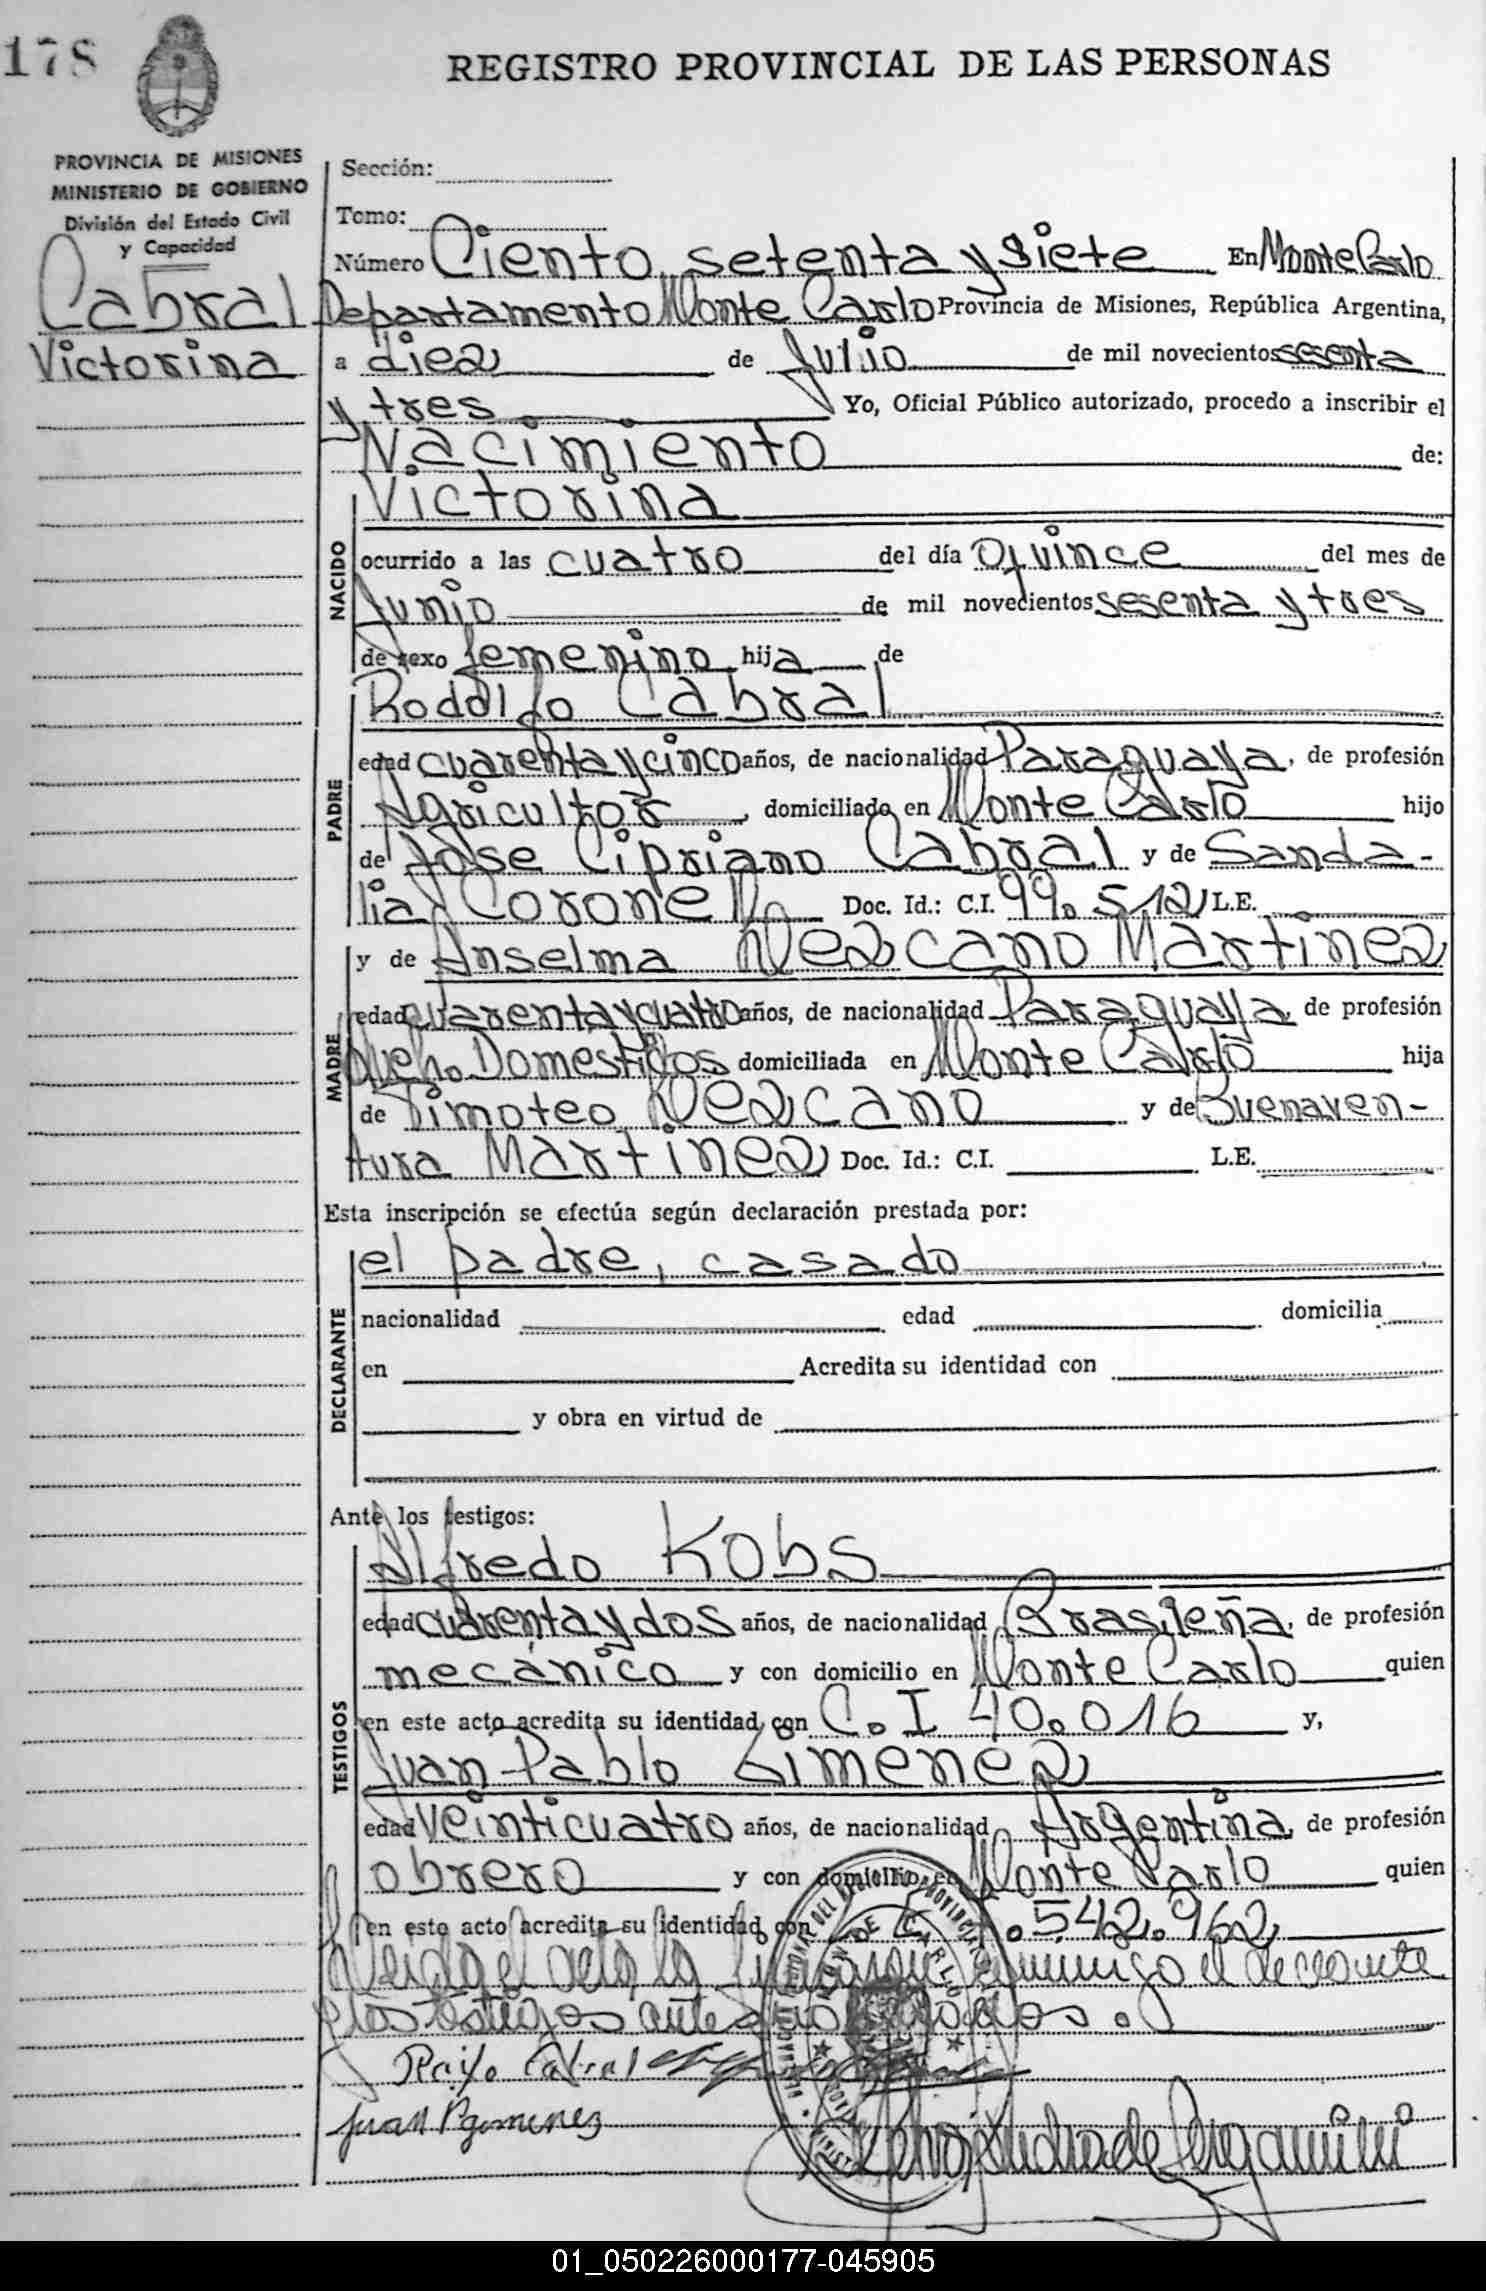 178
REGISTRO PROVINCIAL DE LAS PERSONAS
PROVINCIA DE MISIONES
MINISTERIO DE GOBIERNO
División del Estado Civil
y Capacidad
Cabral
Victorina
Sección:
Tomo:
Número Ciento setenta y siete En Monte Carlo
Departamento Monte Carlo Provincia de Misiones, República Argentina,
a diez de Julio de mil novecientos sesenta
y tres Yo, Oficial Público autorizado, procedo a inscribir el
Nacimiento de:
Victorina
NACIDO
ocurrido a las cuatro del día quince del mes de
Junio de mil novecientos sesenta y tres
de sexo femenino hija de
Rodolfo Cabral
PADRE
edad cuarenta y cinco años, de nacionalidad Paraguaya, de profesión
Agricultor, domiciliado en Monte Carlo hijo
de Jose Cipriano Cabral y de Sanda-
lia Coronel Doc. Id.: C.I. 99.512 L.E.
MADRE
y de Anselma Nezcano Martinez
edad cuarenta y cuatro años, de nacionalidad Paraguaya, de profesión
Queh. Domesticos domiciliada en Monte Carlo hija
de Timoteo Nezcano y de Buenaven-
tura Martinez Doc. Id.: C.I. L.E.
Esta inscripción se efectúa según declaración prestada por:
DECLARANTE
el padre, casado
nacionalidad edad domicilia
en Acredita su identidad con
y obra en virtud de
Ante los testigos:
TESTIGOS
Alfredo Kobs
edad cuarenta y dos años, de nacionalidad Brasileña, de profesión
mecánico y con domicilio en Monte Carlo quien
en este acto acredita su identidad con C.I 40.016 y,
Juan Pablo Gimenez
edad veinticuatro años, de nacionalidad Argentina, de profesión
obrero y con domicilio en Monte Carlo quien
en este acto acredita su identidad con .542.962
Leida el acta la conmigo el declarante
y los testigos antes
Cabral
Juan P Gimenez
01_050226000177-045905